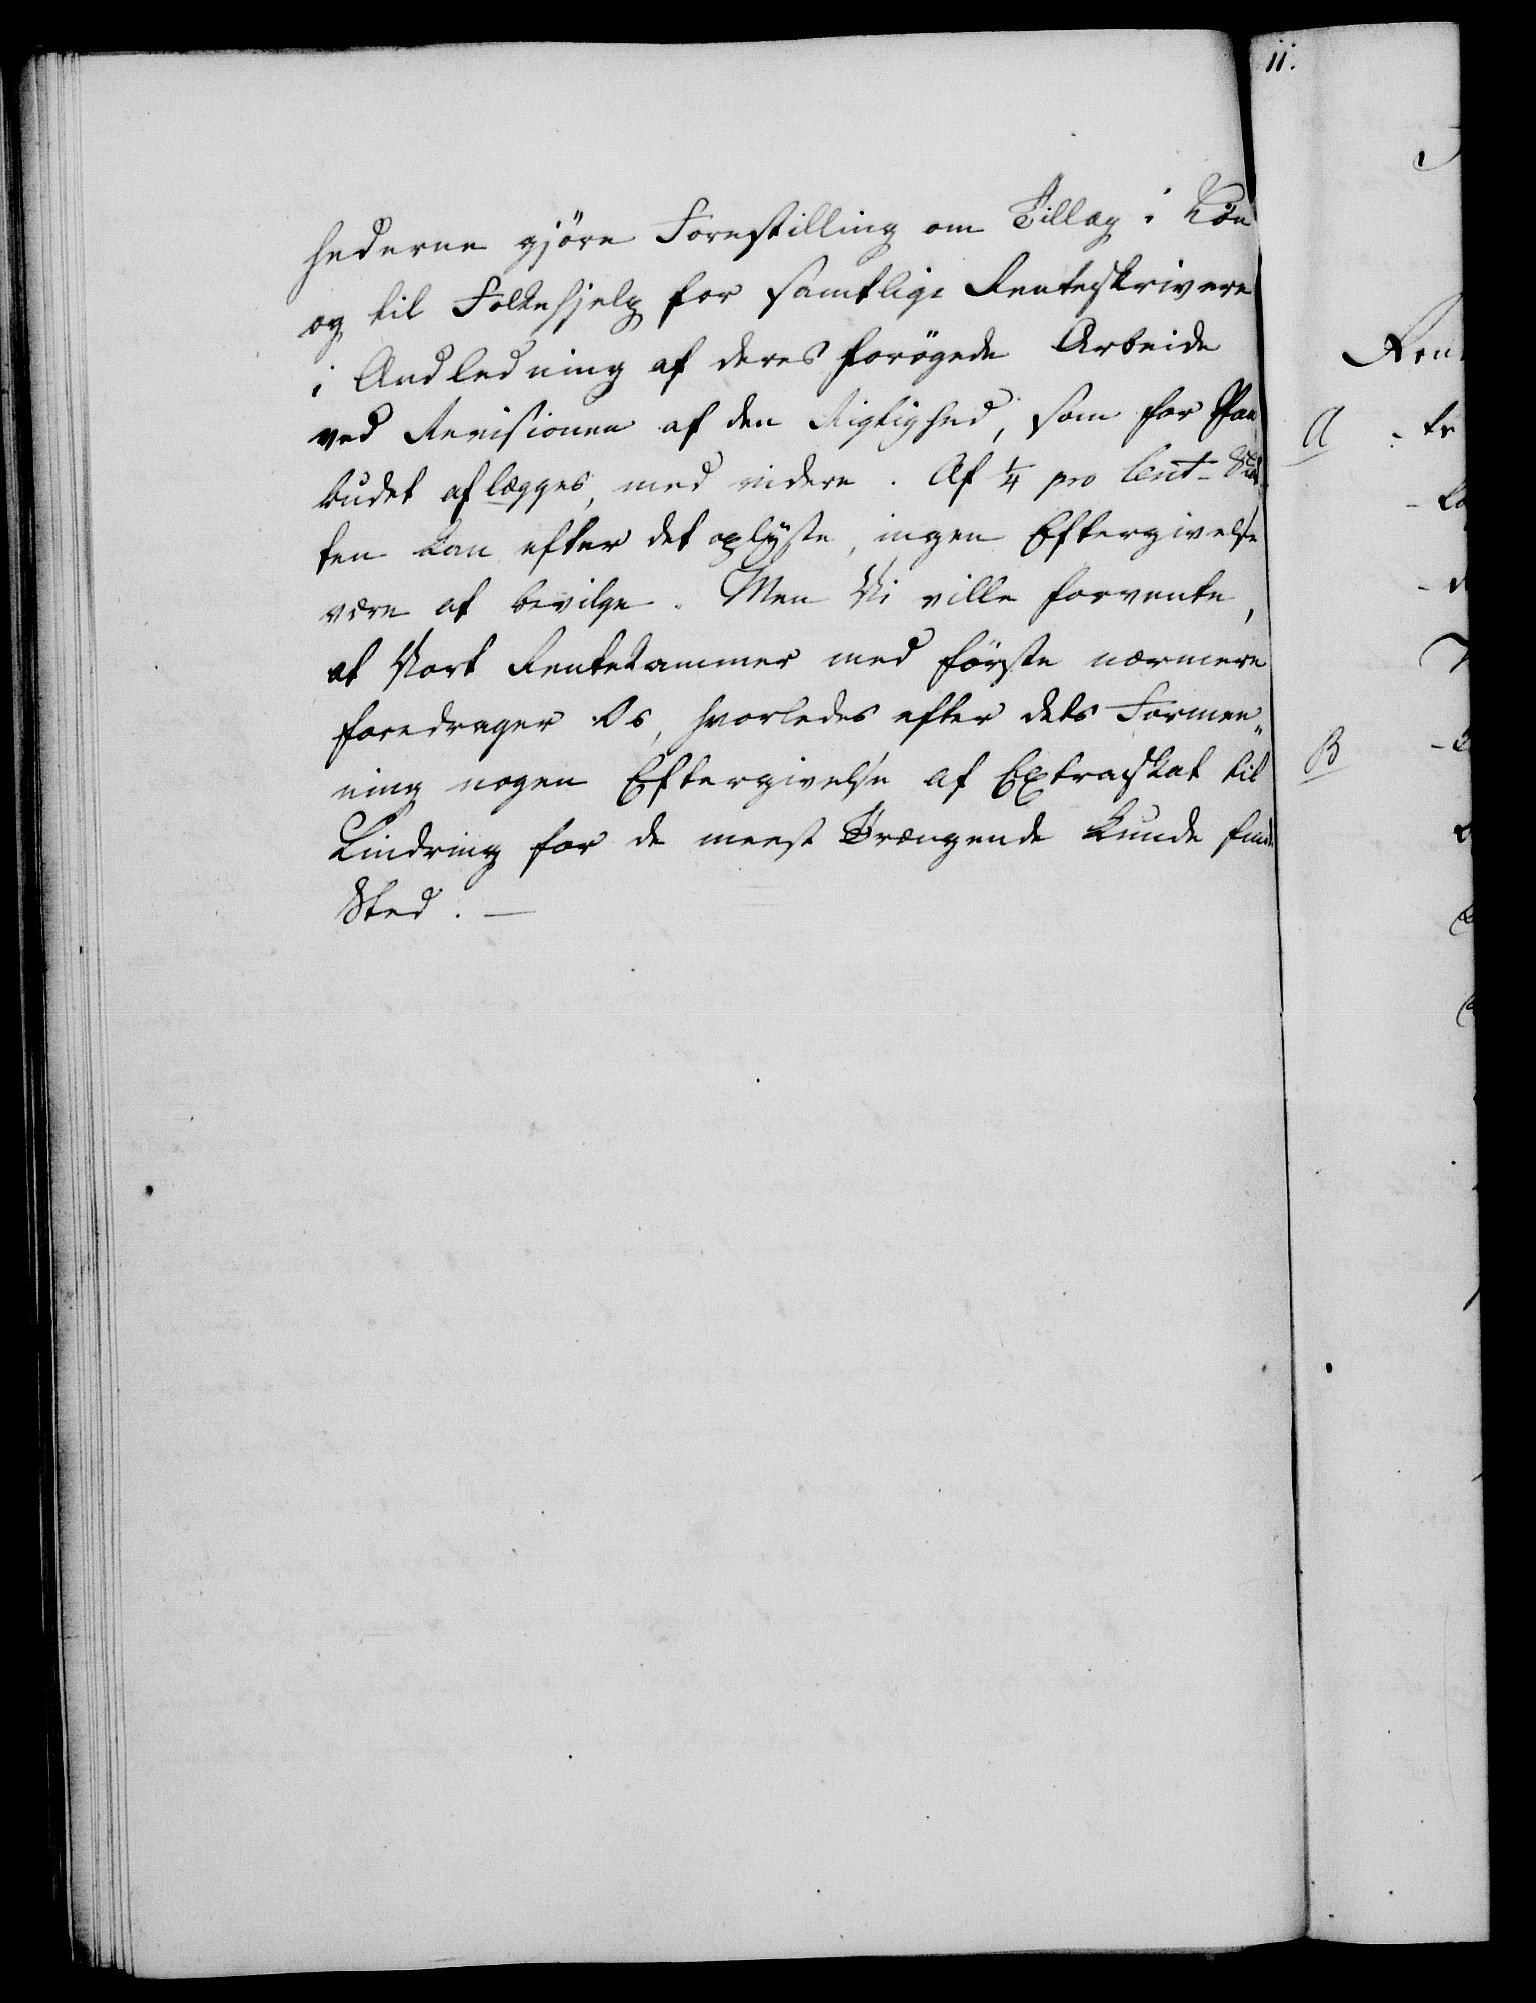 hederne gjöre Forestilling om Tillæg i Lön
og til Folkehjelp for samtlige Renteskrivere
i Andledning af deres forögede Arbeide
ved Revisionen af den Rigtighed, som for Paa
budet aflægges, med videre. Af ¼ pro Cent-Skat
ten kan efter det oplyste, ingen Eftergivelse
være at bevilge. Men Vi ville forvente,
at Vort Rentekammer med förste nærmere
foredrager Os, hvorledes efter dets Formee„
ning nogen Eftergivelse af Extraskat til
Lindring for de meest Trængende kunde finde
Sted. —
11.
A
B